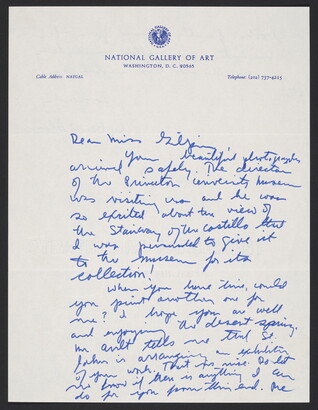 NATIONAL GALLERY OF ART
WASHINGTON, D. C. 20565
Cable Address: NATGAL
Telephone: (202) 737-4215
Dear Miss Gilpin,
Your beautiful photographs
arrived safely. The director
of the Princeton University Museum
was visiting us and he was
so excited about the view of
the Stairway of the Castillo that
I was persuaded to give it
to the museum for its
collection!
When you have time, could
you print another one for
me? I hope you are well
and enjoying the desert spring.
tells me that St.
John is arranging an exhibition
of your work. That is nice. Do let
me know if there is anything I can
do for you from this end.